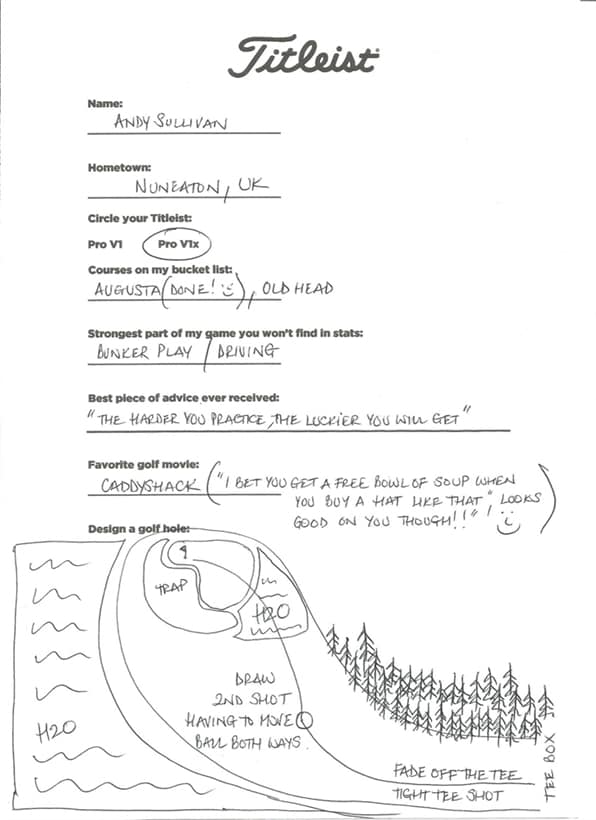 Titleist
Name:
ANDY SULLIVAN
Hometown:
NUNEATON, UK
Circle your Titleist:
Pro V1 Pro V1x
Courses on my bucket list:
AUGUSTA (DONE! ☺), OLD HEAD
Strongest part of my game you won't find in stats:
BUNKER PLAY / DRIVING
Best piece of advice ever received:
"THE HARDER YOU PRACTICE, THE LUCKIER YOU WILL GET"
Favorite golf movie:
CADDYSHACK ("I BET YOU GET A FREE BOWL OF SOUP WHEN
YOU BUY A HAT LIKE THAT" LOOKS
GOOD ON YOU THOUGH!!"! ☺)
Design a golf hole:
TRAP
H2O
DRAW
2ND SHOT
HAVING TO MOVE
BALL BOTH WAYS.
H2O
FADE OFF THE TEE
TIGHT TEE SHOT
TEE BOX